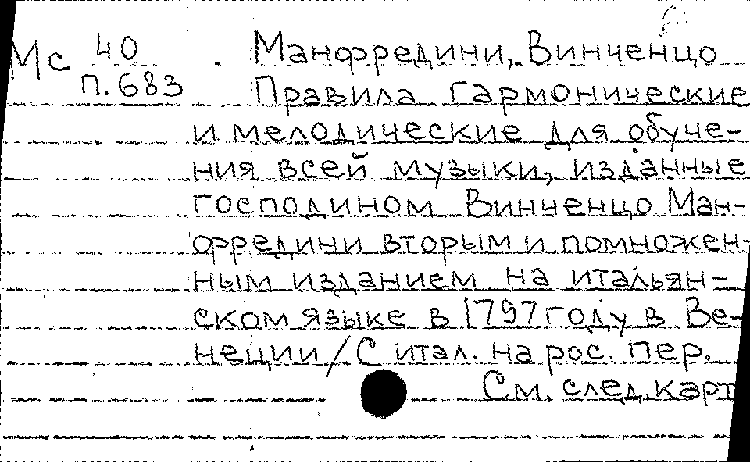 Мс 40 Манфредини, Винченцо
п.683 Правила гармонические
и мелодические для обуче-
ния всей музыки, изданные
господином Винченцо Ман-
фредини вторым и помножен-
ным изданием на итальян-
ском языке в 1797 году в Ве-
неции / С итал. на рос. пер.
См. след. карт